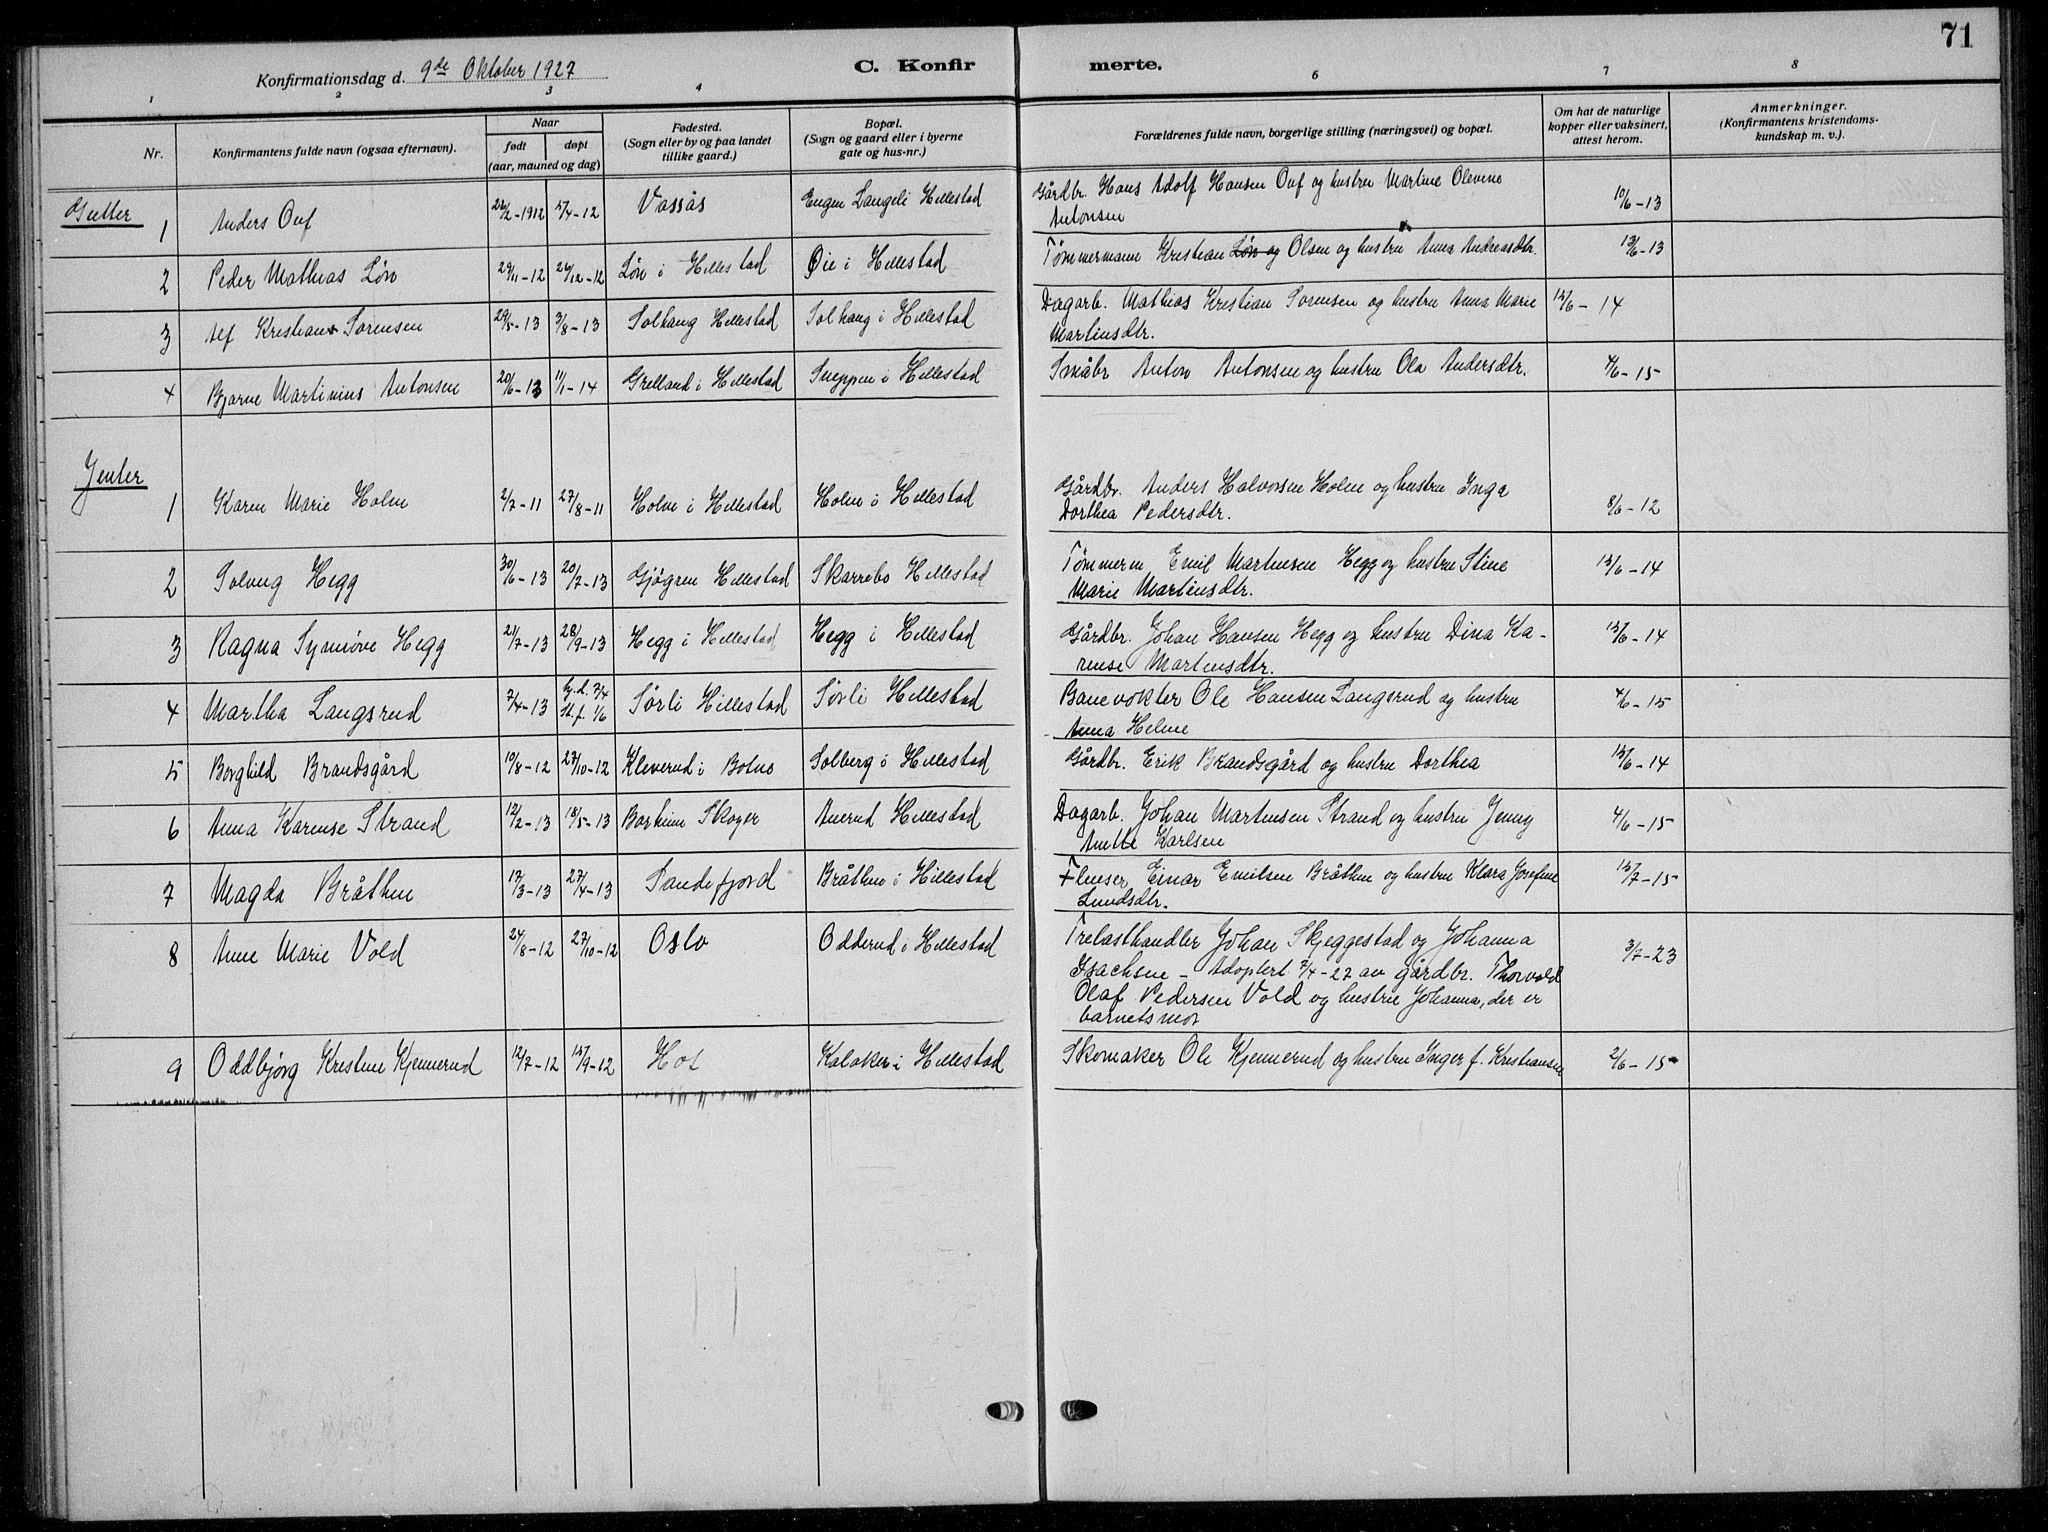 71
Konfirmationsdag d. 9de Oktober 1927
C. Konfir merte.
1 2 3 4 5 6 7 8
Nr.
Konfirmantens fulde navn (ogsaa efternavn).
Naar
født døpt
(aar, maaned og dag)
Fødested.
(Sogn eller by og paa landet
tillike gaard.)
Bopæl.
(Sogn og gaard eller i byerne
gate og hus-nr.)
Forældrenes fulde navn, borgerlige stilling (næringsvei) og bopæl.
Om hat de naturlige
kopper eller vaksinert,
attest herom.
Anmerkninger.
(Konfirmantens kristendoms-
kundskap m. v.).
Gutter
1 Anders Ouf 2-1912 4-12 Vassås Engen Langeli Hillestad Gårdbr. Hans Adolf Hansen Ouf og hustru Martine Olevine
Antonsen 10/6-13
2 Peder Mathias Løn 29/11-12 26/12-12 Løn i Hillestad Øie i Hillestad Tømmermann Kristian Løn og Olsen og hustru Anna Andreasdtr. 13/6-13
3 Alf Kristian Sørensen 29/5-13 3/8-13 Solhaug Hillestad Solhaug i Hillestad Dagarb. Mathias Kristian Sørensen og hustru Anna Marie
Martinsdtr. 15/6-14
4 Bjarne Martinius Antonsen 20/6-13 11/1-14 Grelland i Hillestad Sneppen i Hillestad Småbr Anton Antonsen og hustru Ola Andersdtr. 4/6-15
Jenter
1 Karen Marie Holm 2/7-11 27/8-11 Holm i Hillestad Holm i Hillestad Gårdbr. Anders Halvorsen Holm og hustru Inga
Dorthea Pedersdtr. 8/6-12
2 Solveig Hegg 30/6-13 20/7-13 Gjøgren Hillestad Skarrebo Hillestad Tømmerm Emil Martinsen Hegg og hustru Stine
Marie Martinsdtr. 15/6-14
3 Ragna Synnøve Hegg 21/7-13 28/9-13 Hegg i Hillestad Hegg i Hillestad Gårdbr. Johan Hansen Hegg og hustru Dina Ka-
rense Martinsdtr. 15/6-14
4 Martha Langsrud 7/4-13 hj.d. 7/4
st.f. 1/6 Sørli Hillestad Sørli Hillestad Banevokter Ole Hansen Langsrud og hustru
Anna Helene 4/6-15
5 Borghild Brandsgård 10/8-12 27/10-12 Kleverud i Botne Solberg i Hillestad Gårdbr. Erik Brandsgård og hustru Dorthea 15/6-14
6 Anna Karense Strand 12/2-13 18/5-13 Borheim Skoger Anerud Hillestad Dagarb. Johan Martinsen Strand og hustru Jenny
Anette Karlsen 4/6-15
7 Magda Bråthen 17/3-13 27/4-13 Sandefjord Bråthen i Hillestad Flenser Einar Emilsen Bråthen og hustru Klara Josefine
Lundsdtr. 15/7-15
8 Anne Marie Vold 24/8-12 27/10-12 Oslo Odderud i Hillestad Trelasthandler Johan Skjeggestad og Johanna
Isachsen - Adoptert 7/4-27 av gårdbr. Thorvald
Olaf Pedersen Vold og hustru Johanna, der er
barnets mor 3/7-23
9 Oddbjørg Kristine Kjennerud 12/7-12 15/9-12 Hof Kalaker i Hillestad Skomaker Ole Kjennerud og hustru Inger f. Kristiansen 2/6-15